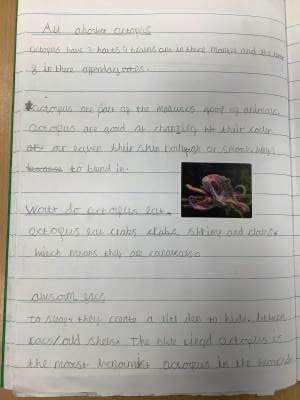 All about octopus
octopus have 3 harts 9 brains one in there mantel and the other
8 in there appendages.
octopus are part of the molluscs group of animals.
octopus are good at changing their color
or eaven their skin to blend in.
Watt do octopus eat.
octopus eat crabs shrimp and clams
which means they are canavores.
awsom facs
To sleap they create a litl den to hide. betwen
rocs/old shels. The blue ringd octopus is
the moast octopus in the